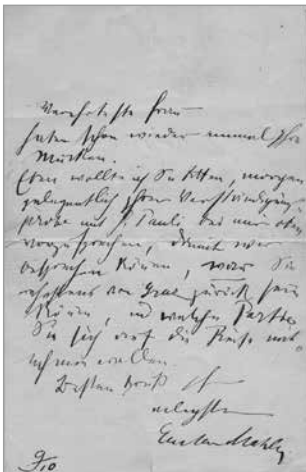 Verehrteste Frau
haben schon wieder einmal Ihre
Mucken.
Eben wollte ich Sie bitten, morgen
gelegentlich Ihrer Verständigungs
probe mit Pauli bei mir oben
vorzusprechen, damit wir
besprechen können, wann Sie
von Graz zurück sein
können, und welche Parthie
Sie sich auf die Reise mit
nehmen wollen
Besten Gruß
Gustav Mahler